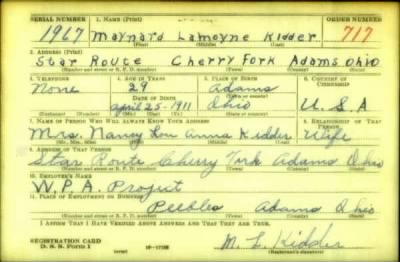 SERIAL NUMBER 1. NAME (Print) ORDER NUMBER
1967 Maynard Lamoyne Kidder 717
(First) (Middle) (Last)
2. ADDRESS (Print)
Star Route Cherry Fork Adams Ohio
(Town) (County) (State)
3. TELEPHONE 4. AGE IN YEARS 5. PLACE OF BIRTH 6. COUNTRY OF CITIZENSHIP
None 29 Adams
DATE OF BIRTH (Town or county)
April 25-1911 Ohio U.S.A
(Mo.) (Day) (Yr.) (State or country)
7. NAME OF PERSON WHO WILL ALWAYS KNOW YOUR ADDRESS 8. RELATIONSHIP OF THAT PERSON
Mrs. Nancy Lou Anna Kidder Wife
(Mr., Mrs., Miss) (First) (Middle) (Last)
9. ADDRESS OF THAT PERSON
Star Route Cherry Fork Adams Ohio
(Number and street or R. F. D. number) (Town) (County) (State)
10. EMPLOYER'S NAME
W.P.A. Project
11. PLACE OF EMPLOYMENT OR BUSINESS
Peebles Adams Ohio
(Number and street or R. F. D. number) (Town) (County) (State)
I AFFIRM THAT I HAVE VERIFIED ABOVE ANSWERS AND THAT THEY ARE TRUE.
REGISTRATION CARD
D. S. S. Form 1 16-17105 M. L. Kidder
(Registrant's signature)